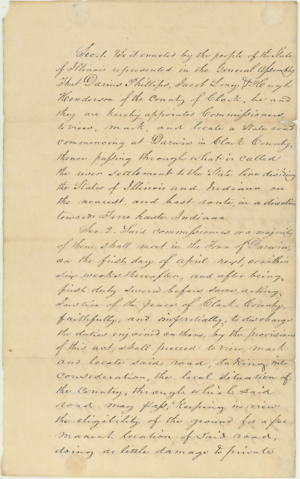 Sec. 1. Be it enacted by the people of the State
of Illinois represented in the General Assembly
That Darius Phillips, Jacob Long & Hough
Henderson of the County of Clark, be and
they are hereby appointed Commissioners
to view, mark, and locate a State road
commencing at Darwin in Clark County,
thence passing through what is called
the union settlement to the State line dividing
the States of Illinois and Indiana on
the nearest, and best route, in a direction
towards Terre haute Indiana
Sec. 2. Said commissioners or a majority
of them shall meet in the Town of Darwin
on the first day of april next, or within
six weeks thereafter, and after being
first duly sworn before some acting
Justice of the peace of Clark County,
faithfully, and impartially, to discharge
the duties enjoined on them, by the provisions
of this act, shall proceed to view, mark
and locate said road, taking into
consideration, the local situation of
the County, through which said
road may pass, keeping in view
the eligibility of the ground for a per
manent location of said road,
doing as little damage to private